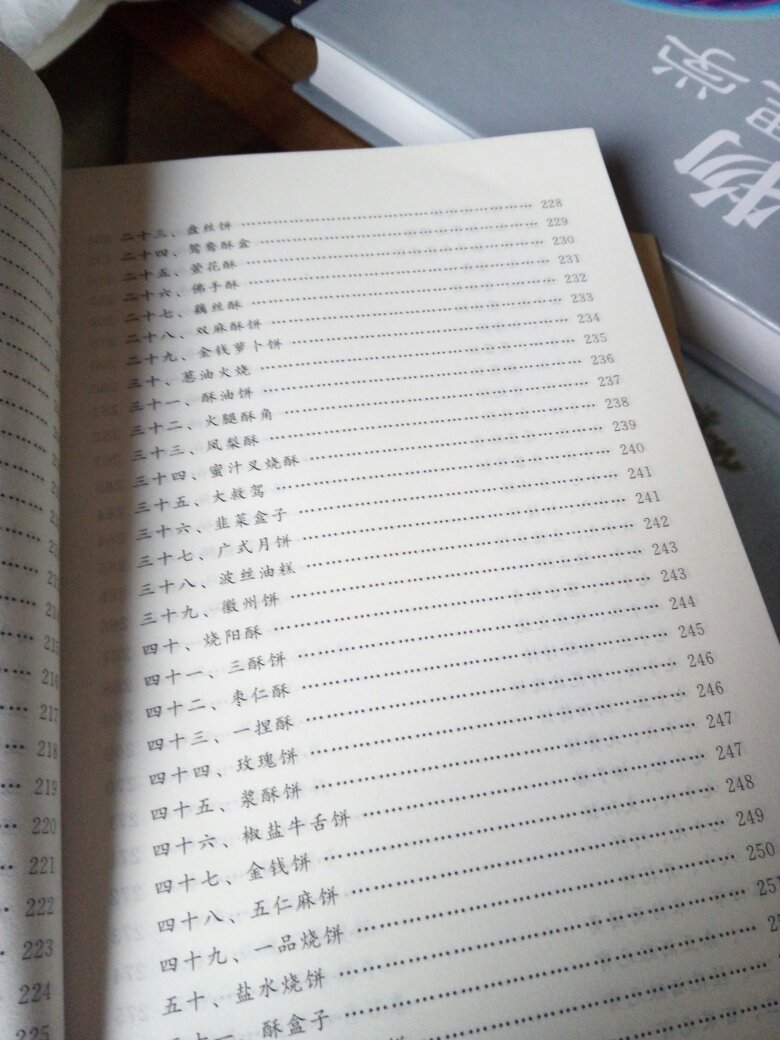 二十三、盘丝饼 …… 228
二十四、鸳鸯酥盒 …… 229
二十五、萱花酥 …… 230
二十六、佛手酥 …… 231
二十七、藕丝酥 …… 232
二十八、双麻酥饼 …… 233
二十九、金钱萝卜饼 …… 234
三十、葱油火烧 …… 235
三十一、酥油饼 …… 236
三十二、火腿酥角 …… 237
三十三、凤梨酥 …… 238
三十四、蜜汁叉烧酥 …… 239
三十五、大救驾 …… 240
三十六、韭菜盒子 …… 241
三十七、广式月饼 …… 241
三十八、波丝油糕 …… 242
三十九、徽州饼 …… 243
四十、烧阳酥 …… 243
四十一、三酥饼 …… 244
四十二、枣仁酥 …… 245
四十三、一捏酥 …… 246
四十四、玫瑰饼 …… 246
四十五、浆酥饼 …… 247
四十六、椒盐牛舌饼 …… 247
四十七、金钱饼 …… 248
四十八、五仁麻饼 …… 249
四十九、一品烧饼 …… 250
五十、盐水烧饼 …… 251
酥盒子
215
216
217
218
219
220
221
222
223
224
225
物理学